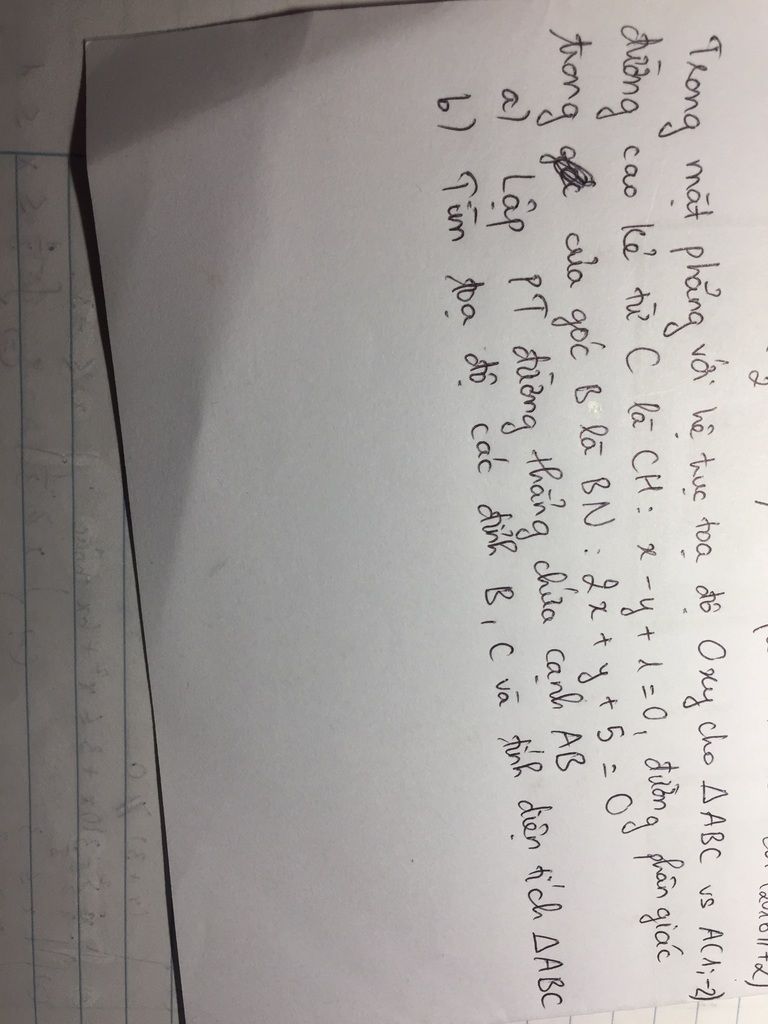 Trong mặt phẳng với hệ trục toạ độ Oxy cho ΔABC vs A(1;-2)
đường cao kẻ từ C là CH: x - y + 1 = 0, đường phân giác
trong của góc B là BN: 2x + y + 5 = 0
a) Lập PT đường thẳng chứa cạnh AB
b) Tìm toạ độ các đỉnh B, C và tính diện tích ΔABC